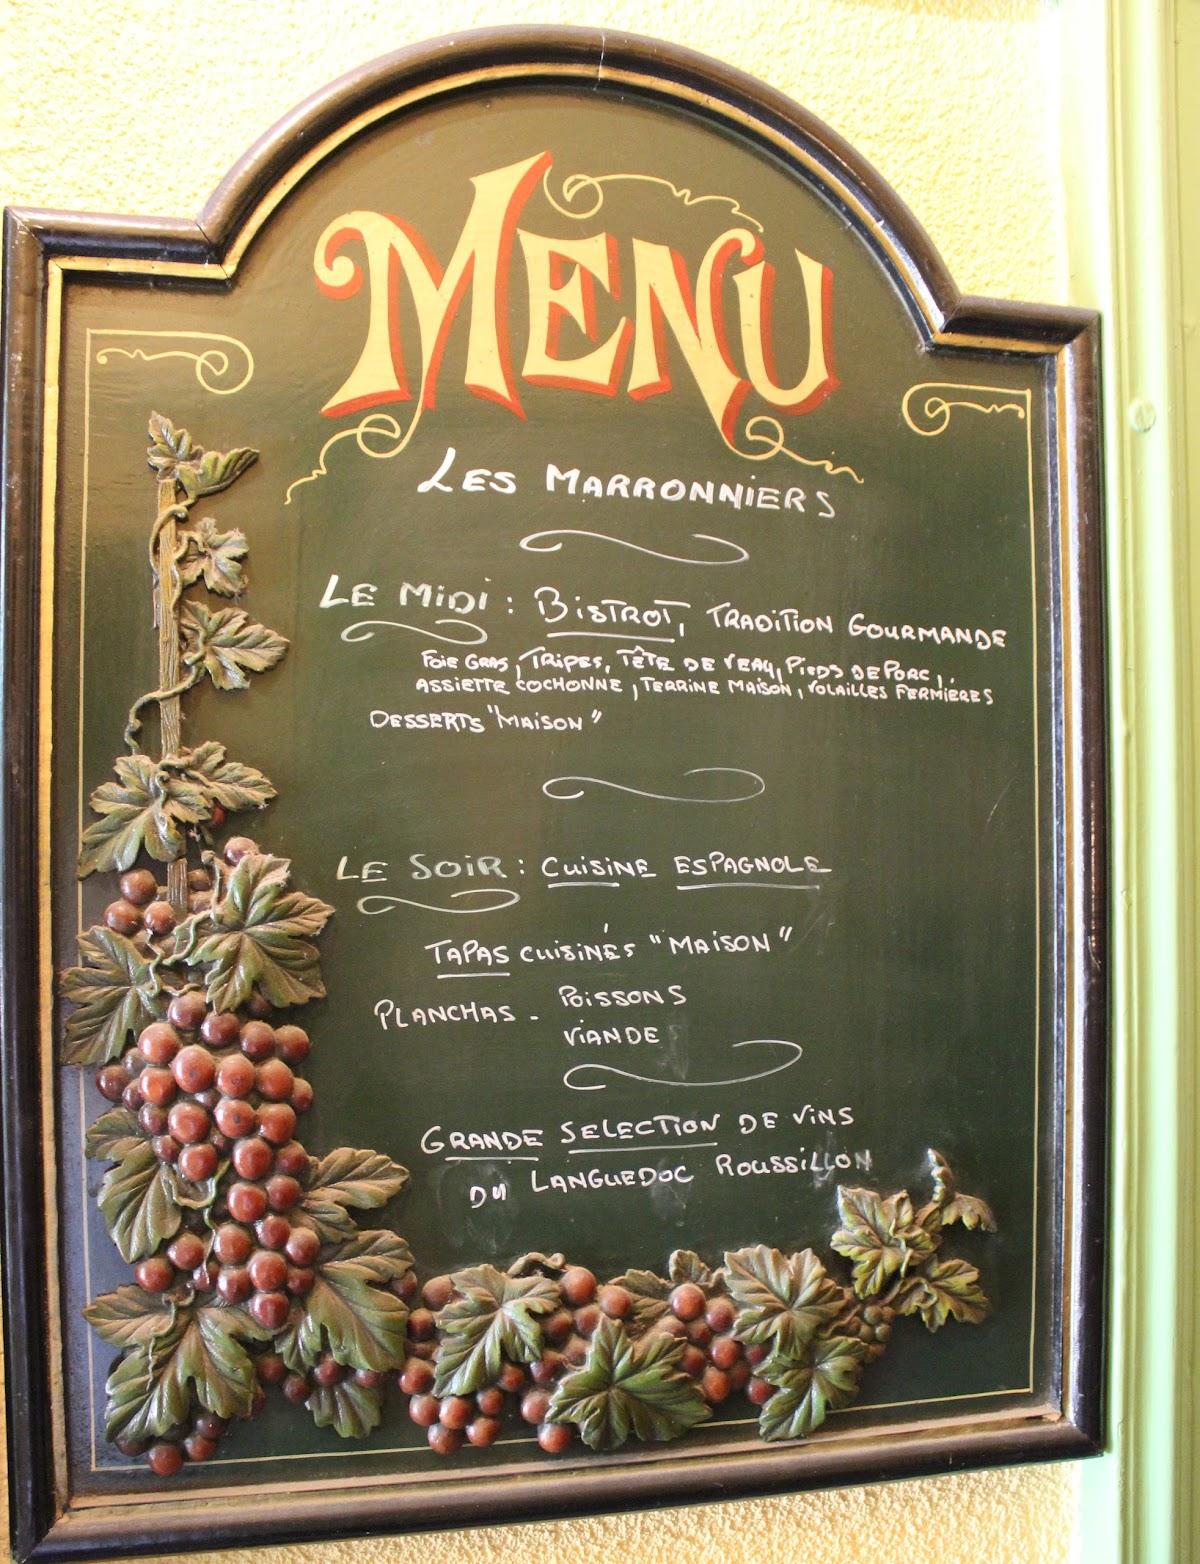 MENU
LES MARRONNIERS
LE MIDI : BISTROT, TRADITION GOURMANDE
FOIE GRAS, TRIPES, TÊTE DE VEAU, PIEDS DE PORC,
ASSIETTE COCHONNE, TERRINE MAISON, VOLAILLES FERMIERES
DESSERTS "MAISON"
LE SOIR : CUISINE ESPAGNOLE
TAPAS CUISINÉS "MAISON"
PLANCHAS - POISSONS
VIANDE
GRANDE SELECTION DE VINS
DU LANGUEDOC ROUSSILLON